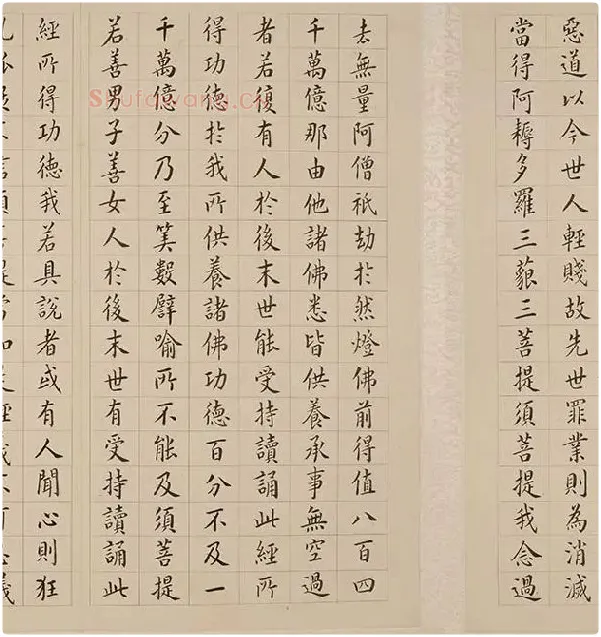 惡道以今世人輕賤故先世罪業則為消滅
當得阿耨多羅三藐三菩提須菩提我念過
去無量阿僧祇劫於然燈佛前得值八百四
千萬億那由他諸佛悉皆供養承事無空過
者若復有人於後末世能受持讀誦此經所
得功德於我所供養諸佛功德百分不及一
千萬億分乃至筭數譬喻所不能及須菩提
若善男子善女人於後末世有受持讀誦此
經所得功德我若具說者或有人聞心則狂